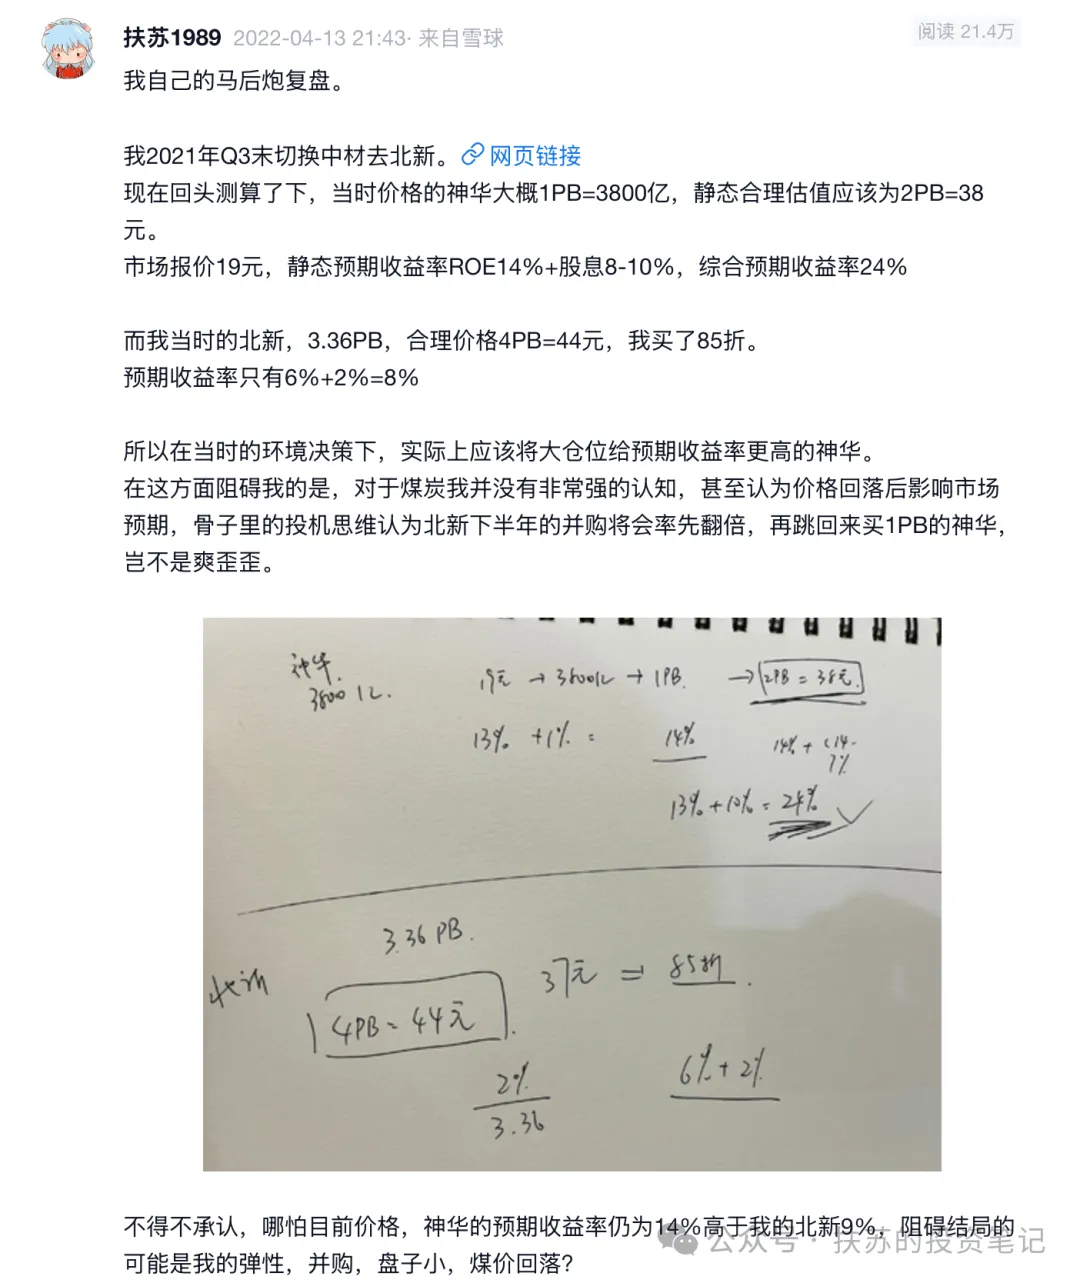 扶苏1989 2022-04-13 21:43· 来自雪球
阅读 21.4万
我自己的马后炮复盘。
我2021年Q3末切换中材去北新。网页链接
现在回头测算了下，当时价格的神华大概1PB=3800亿，静态合理估值应该为2PB=38
元。
市场报价19元，静态预期收益率ROE14%+股息8-10%，综合预期收益率24%
而我当时的北新，3.36PB，合理价格4PB=44元，我买了85折。
预期收益率只有6%+2%=8%
所以在当时的环境决策下，实际上应该将大仓位给预期收益率更高的神华。
在这方面阻碍我的是，对于煤炭我并没有非常强的认知，甚至认为价格回落后影响市场
预期，骨子里的投机思维认为北新下半年的并购将会率先翻倍，再跳回来买1PB的神华，
岂不是爽歪歪。
神华.
3800亿.
19元 → 3800亿 → 1PB. → 2PB = 38元.
13% +1% = 14%
14% + (14-
7%
13%+10% = 24%
3.36 PB.
北新
37元 = 85折.
4PB = 44元.
2%
3.36
6%+2%
不得不承认，哪怕目前价格，神华的预期收益率仍为14%高于我的北新9%，阻碍结局的
可能是我的弹性，并购，盘子小，煤价回落？
公众号·扶苏的投资笔记